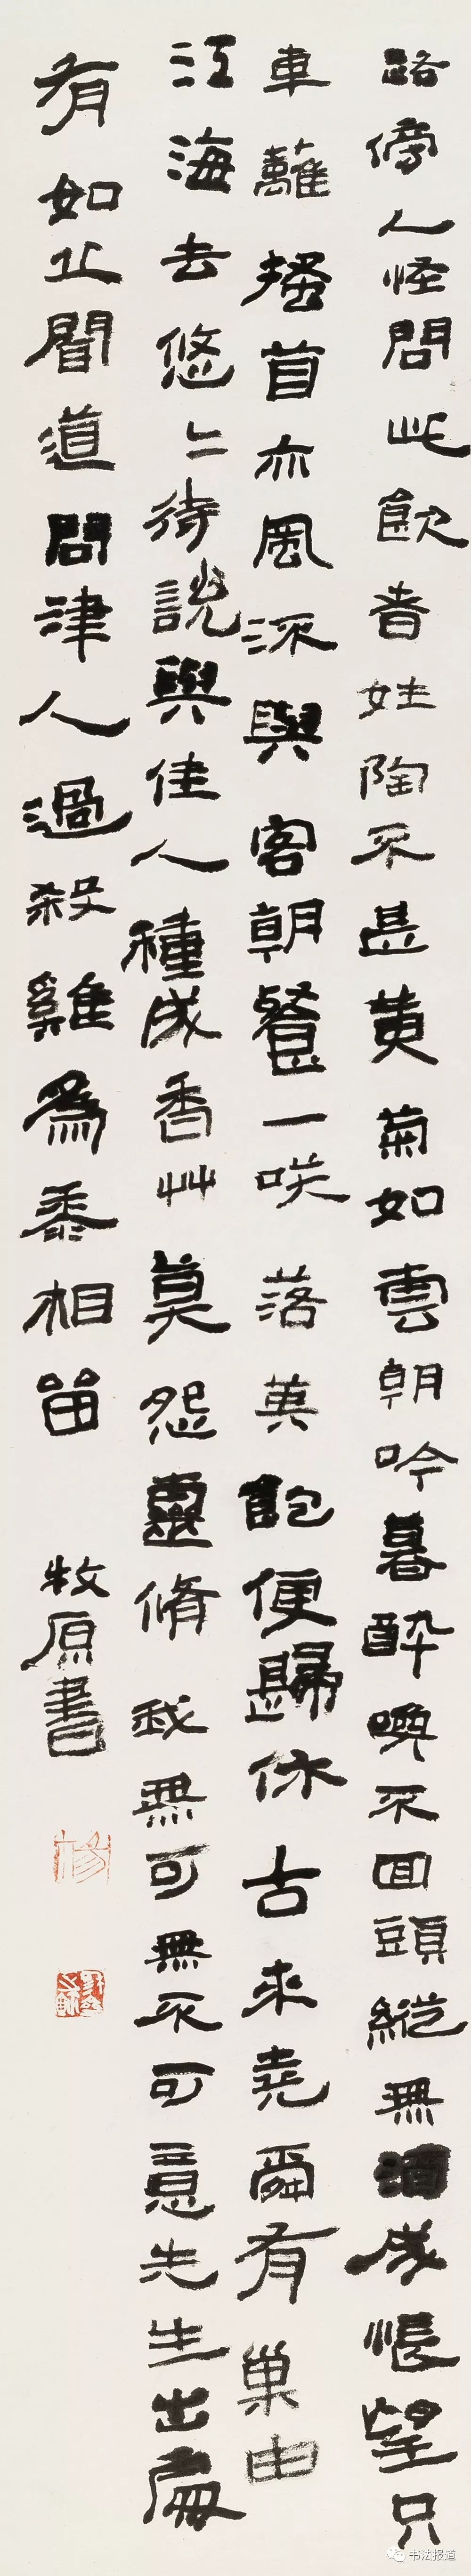 路傍人怪問此飲者姓陶不甚黃菊如雲朝吟暮醉喚不回頭縱無酒成悵望只
東蘺搔首亦風流與客朝餐一咲落英飽便歸休古來堯舜有巢由
江海去悠〻待說與佳人種成香艸莫怨靈脩我無可無不可意先生出處
有如丘聞道問津人過殺雞為黍相留
牧原書
书法报道